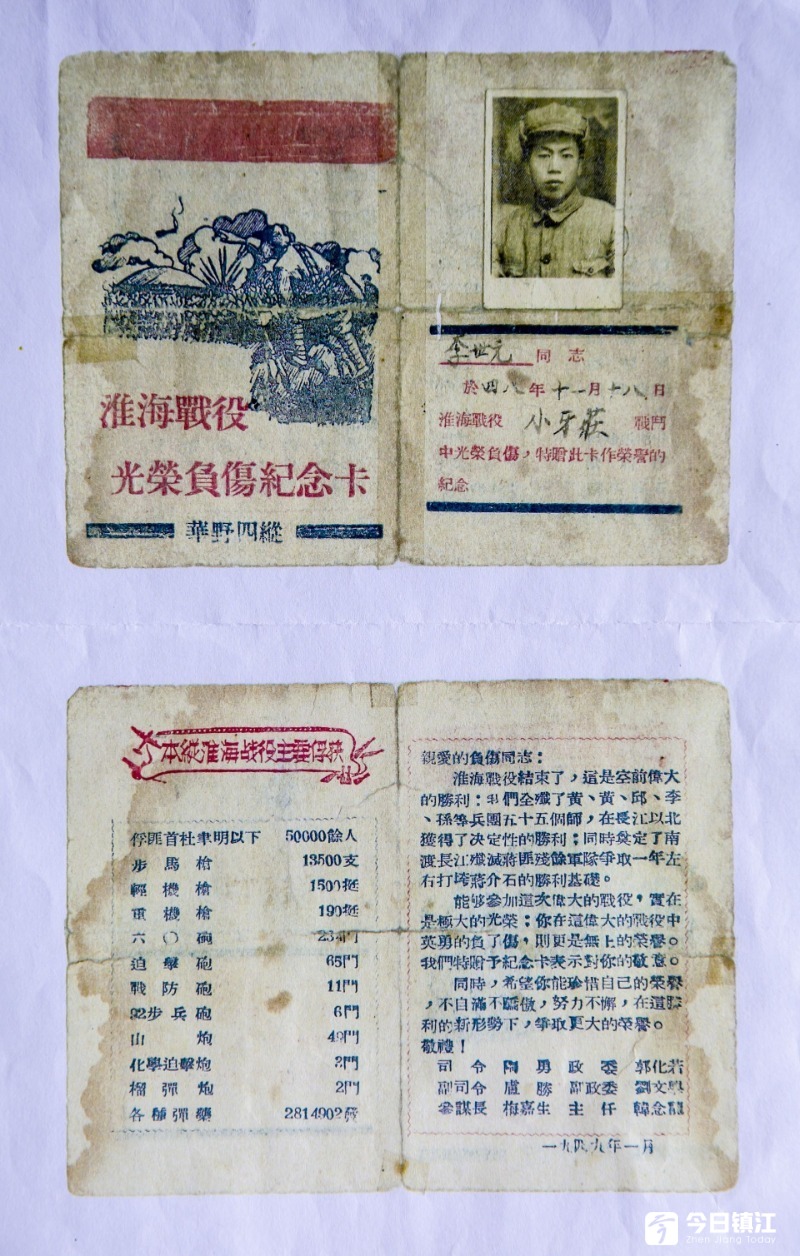 淮海戰役
光榮負傷紀念卡
華野四縱
李世元 同志
於四八年十一月十八日
淮海戰役 小牙莊 戰鬥
中光榮負傷，特贈此卡作榮譽的
紀念
本縱淮海战役主要俘获
俘匪首杜聿明以下 50000餘人
步馬槍 13500支
輕機槍 1500挺
重機槍 190挺
六〇砲 門
迫擊砲 65門
戰防砲 11門
92步兵砲 6門
山炮 49門
化學迫擊炮 門
榴彈炮 2門
各種彈藥 2814902發
親愛的負傷同志：
淮海戰役結束了，這是空前偉大
的勝利：我們全殲了黃、黃、邱、李
、孫等兵團五十五個師，在長江以北
獲得了决定性的勝利；同時奠定了南
渡長江殲滅蔣匪殘餘軍隊爭取一年左
右打垮蔣介石的勝利基礎。
能够參加這次偉大的戰役，實在
是極大的光榮；你在這偉大的戰役中
英勇的負了傷，則更是無上的榮譽。
我們特贈予紀念卡表示對你的敬意。
同時，希望你能珍惜自己的榮譽
，不自滿不驕傲，努力不懈，在這勝
利的新形勢下，爭取更大的榮譽。
敬禮！
司令 陶勇 政委 郭化若
副司令 盧勝 副政委 劉文學
參謀長 梅嘉生 主任 韓念龍
一九四九年一月
今日镇江
Zhen Jiang Today